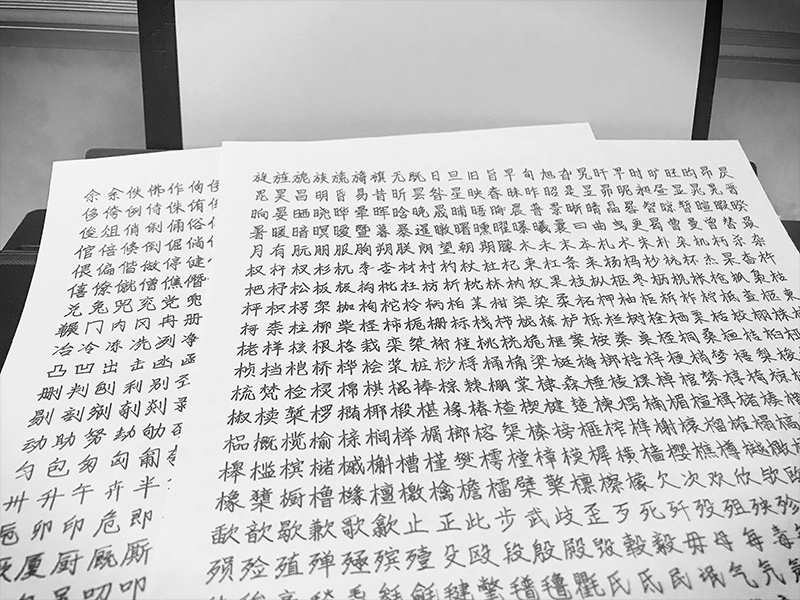 佘余佚佛作佝
侈侉侍侏侑
俊俎俏俐俑俗
倌倍倏倒倔倘
偎偏偕做停健
僖僚僦僧僬僭
兑兔兕兖党兜
门内冈冉册
冶冷冻冼冽净
凸凹出击凼函
删判刨利别
剔剖剜剞剡
动助努劫劬
勺包匆匈匍
卅升午卉半
卮卯印危即
厦厨厩厮
叨叩
旋旌旎族旒旖旗无既日旦旧旨早旬旭旮旯旰旱时旷旺昀昂昃
昆昊昌明昏易昔昕昙昝星映春昧昨昭是昱昴昵昶昼显晁晃晋
晌晏晒晓晔晕晖晗晚晟晡晤晦晨普景晰晴晶晷智晾暂暄暇暌
暑暖暗暝暧暨暮暴暹暾曙曛曜曝曦曩曰曲曳更曷曹曼曾替最
月有朊朋服朐朔朕朗望朝期朦木未末本札术朱朴朵机朽杀杂
权杆杈杉杌李杏材村杓杖杜杞束杠条来杨杪杭杯杰杲杳杵
杷杼松板极构枇枉枋析枕林枘枚果枝枞枢枣枥枧枨枪枫枭枯
枰枳枵架枷枸柁柃柄柏某柑柒染柔柘柙柚柜柝柞柠柢查柩柬
柯柰柱柳柴柽柿栀栅标栈栉栊栋栌栎栏树栓栖栗栝校栩株
栲样核根格栽栾桀桁桂桃桄桅框案桉桌桎桐桑桓桔桕
桢档桤桥桦桧桨桩桫桴桶桷梁梃梅梆梏梓梗梢梦梧梨梭
梳梵检棂棉棋棍棒棕棘棚棠棣森棰棱棵棹棺棼椁椅
椒椟椠椤椭椰椴椹椽椿楂楔楗楚楝楞楠楣楦楫楱
榀概榄榆榇榈榉榍榔榕榘榛榜榧榨榫榭榱榴榷榻
槔槛槟槠槭槲槽槿樊樗樘樟模樨横樯樱樵樽樾橄
橡橥橱橹橼檀檄檎檐檑檗檠檩檫檬欠次欢欣欤欧
歃歆歇歉歌歙止正此步武歧歪歹死歼殁殂殃殄
殒殓殖殚殛殡殪殳殴段殷殿毁毂毅毋母每毒
毛毪毯毳毵毹毽氅氆氇氍氏氐民氓气氕